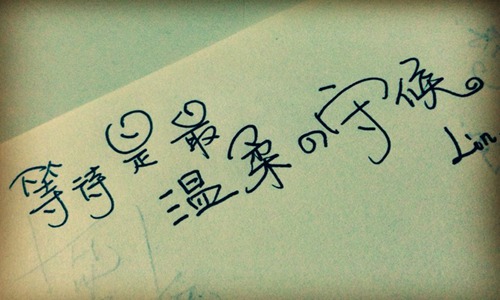 等待是最温柔の守候。
Lion